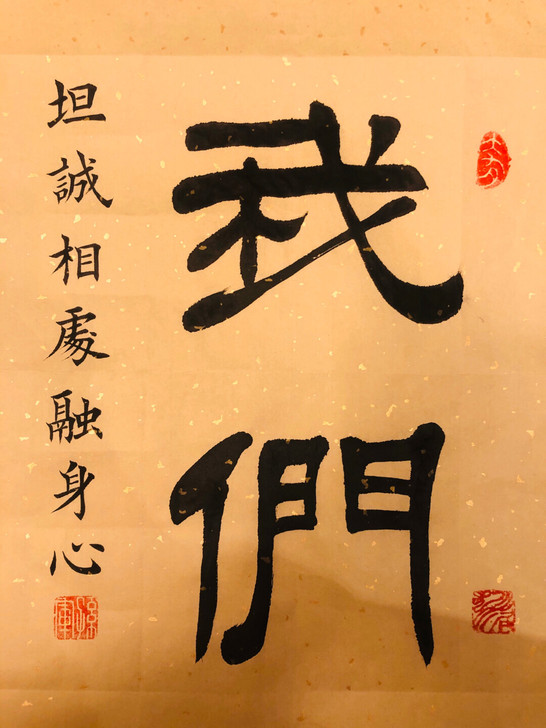 我們
坦誠相處融身心